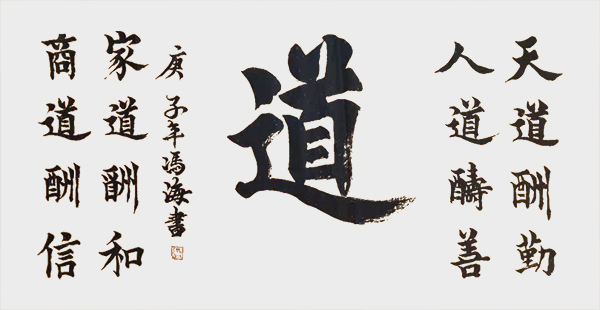 天道酬勤
人道醻善
道
庚子年冯海書
家道酬和
商道酬信